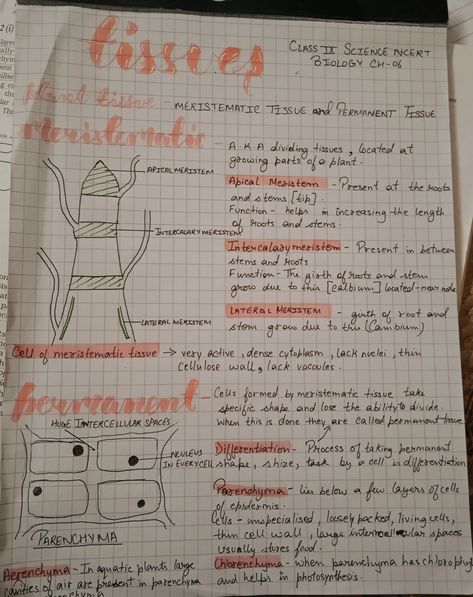 tissues
CLASS IX SCIENCE NCERT
BIOLOGY CH-06
plant tissue - MERISTEMATIC TISSUE and PERMANENT TISSUE
Meristematic - A.K.A dividing tissues, located at
growing parts of a plant.
Apical Meristem - Present at the roots
and stems [tip].
Function - helps in increasing the length
of roots and stems.
Intercalary meristem - Present in between
stems and roots
Function - The girth of roots and stem
grow due to this [calbium] located-near node
LATERAL MERISTEM - girth of root and
stem grow due to this (Cambium)
APICAL MERISTEM
INTERCALARY MERISTEM
LATERAL MERISTEM
Cell of meristematic tissue → very active, dense cytoplasm, lack nuclei, thin
cellulose wall, lack vacoules.
permanent - Cells formed by meristematic tissue take
specific shape and lose the ability to divide.
when this is done they are called permanent tissue
Differentiation - Process of taking permanent
shape, shize, task by a cell is differentiation
Parenchyma - lies below a few layers of cells
of epidermis.
Cells - unspecialised, loosely packed, living cells,
thin cell wall, large intercellular spaces
usually stores food.
Chlorenchyma - when parenchyma has chlorophyl
and helps in photosynthesis.
HUGE INTERCELLULAR SPACES
NULEUS
IN EVERY CELL
PARENCHYMA
Aerenchyma - In aquatic plants large
cavities of air are present in parenchyma